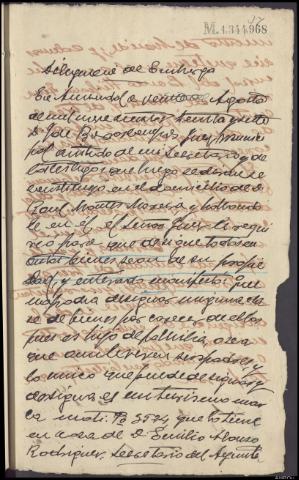 M.1.344.968
Diligencia de Embargo
En a veinte Agosto
de mil novecientos treinta y siete
D. José Juez Munici
pal asistido de mi Secretario y de
los testigos que luego se dirán se
constituyó en el domicilio de D.
Raul Montes Moreira, y hallando
le en él, el Señor Juez le requi
rió para que designe todos sus
bienes sean de su propie
dad y enterado manifestó que
no podía designar ninguna cla
se de bienes por carecer de ellos
pues es hijo de familia, o sea
que aun viven sus padres, y
lo unico que puede designar y
designa es un turismo mar
ca mat. 3524, que lo tiene
en casa de D. Emilio Alonso
Rodriguez, Secretario del Ayunta